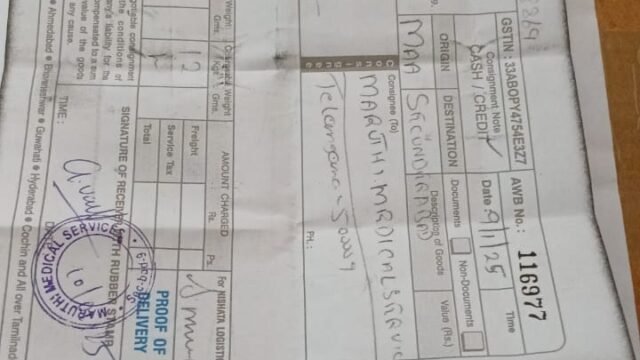 GSTIN : 33ABOPY4754E3Z7
AWB No.: 116977
Consignment Note
CASH / CREDIT
Date : 9/1/25
Time
ORIGIN
DESTINATION
Documents
Non-Documents
MAA
SECUNDRABAD
Description of Goods
Value (Rs.)
Consignee (To)
MARUTHI MEDICAL SERVIC
Telangana - 500009
PH.:
Weight
Grms.
Chargeable Weight
Kgs. Grms.
AMOUNT CHARGED
Rs. Ps.
12
Freight
Service Tax
Total
For NISHATA LOGISTI
PROOF OF
DELIVERY
otiable consignment
the conditions of
ny's liability for the
ompensated to a sum
value of the goods
any cause.
SIGNATURE OF RECEIVER WITH RUBBER STAMP
TIME :
UTHI MEDICAL SERVICE
Ahmedabad ● Bhuvaneshwar ● Guwahati ● Hyderabad ● Cochin and All over Tamilnad